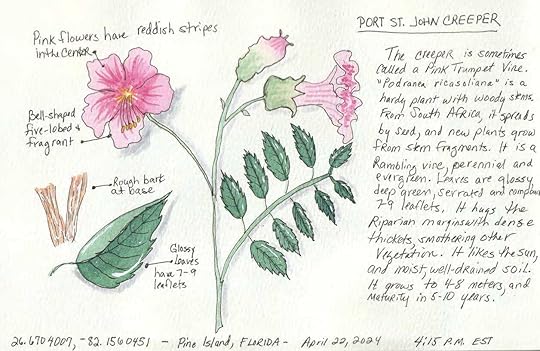 PORT ST. JOHN CREEPER
Pink flowers have reddish stripes
in the center
Bell-shaped
five-lobed &
fragrant
Rough bark
at base
Glossy
leaves
have 7-9
leaflets
The creeper is sometimes
called a Pink Trumpet Vine.
"Podranea ricasoliana" is a
hardy plant with woody stems.
From South Africa, it spreads
by seed, and new plants grow
from stem fragments. It is a
Rambling vine, perennial and
evergreen. Leaves are glossy
deep green, serrated and compound
7-9 leaflets. It hugs the
Riparian margins with dense
thickets, smothering other
Vegetation. It likes the sun,
and moist, well-drained soil.
It grows to 4-8 meters, and
Maturity in 5-10 years.
26.6704007, -82.1560451 - Pine Island, FLORIDA - April 22, 2024 4:15 P.M. EST